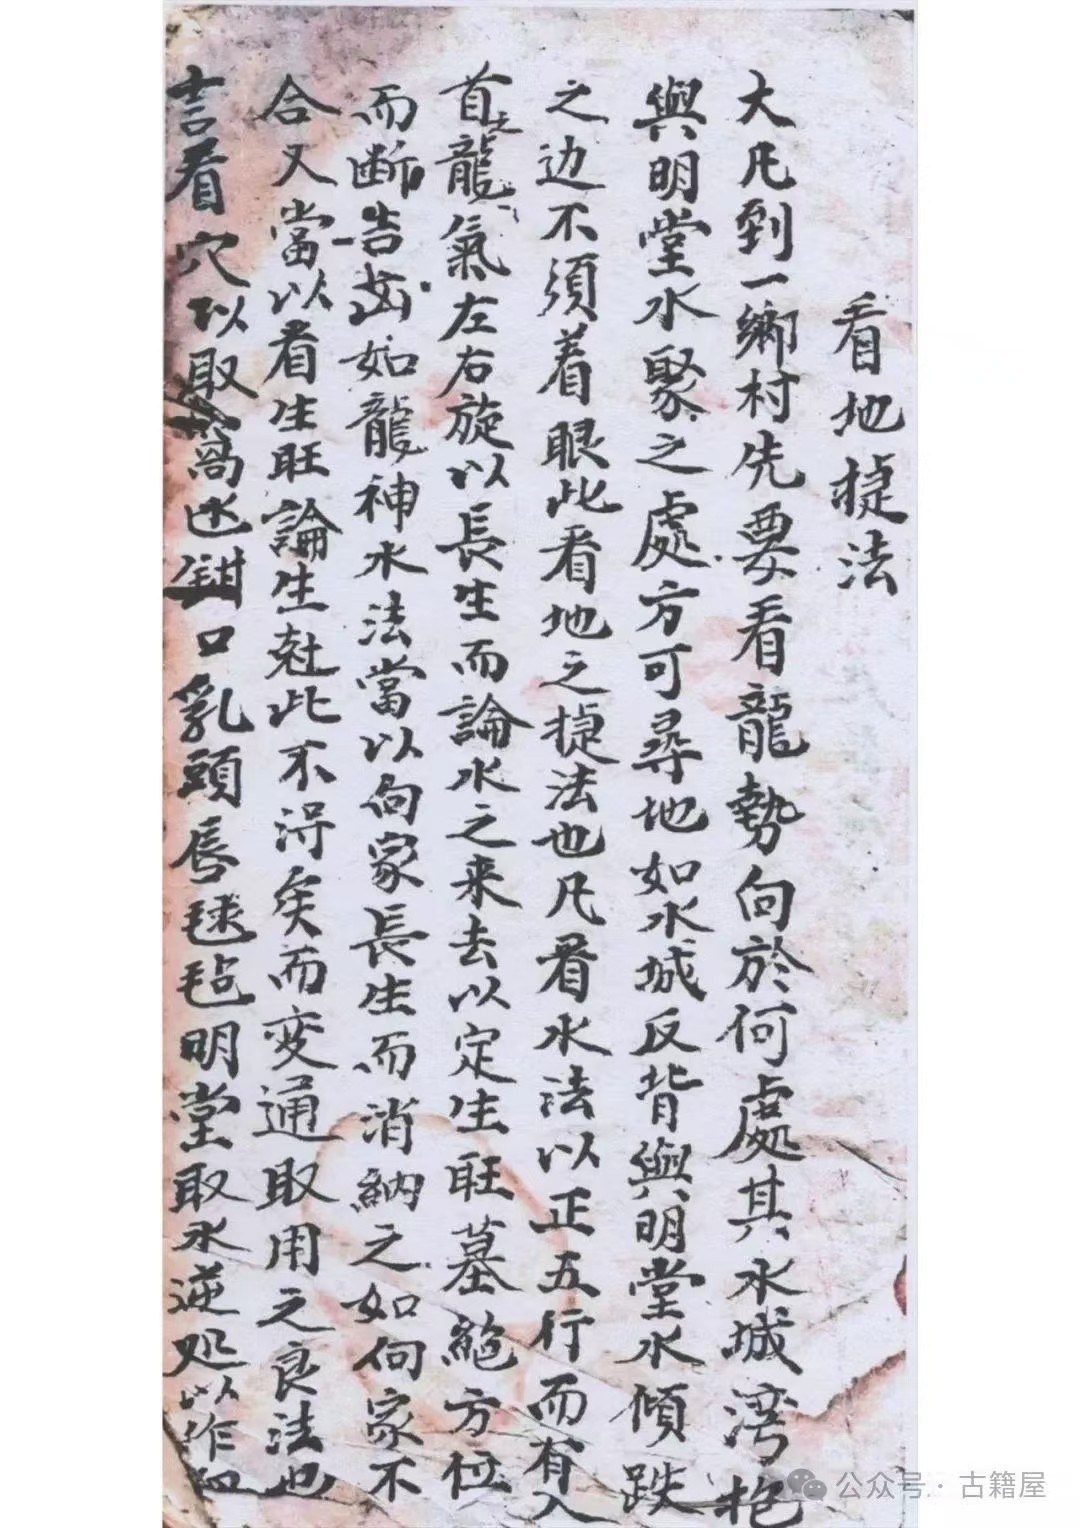 看地捷法
大凡到一鄉村先要看龍勢向於何處其水城湾抱
與明堂水聚之處方可尋地如水城反背與明堂水傾跌
之边不須着眼此看地之捷法也凡看水法以正五行而有入
首之龍氣左右旋以長生而論水之来去以定生旺墓絕方位
而断吉凶如龍神水法當以向家長生而消納之如向家不
合又當以看生旺論生尅此不淂矣而变通取用之良法也
言看穴以取窩鉗口乳頭唇毬毡明堂取水逆处以作
公众号·古籍屋